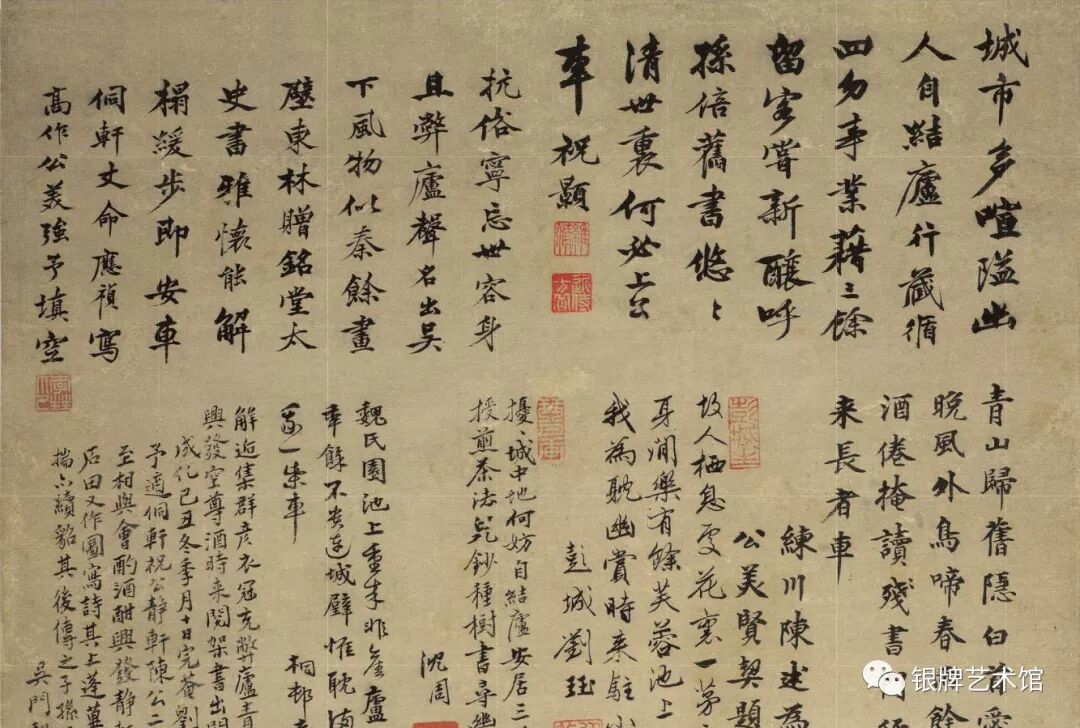 城市多喧隘幽
人自結廬行藏循
四勿事業藉三餘
留客嘗新釀呼
孫倍舊書悠〻
清世裏何必上公
車 祝顥
抗俗寧忘世容身
且弊廬聲名出吳
下風物似秦餘畫
壁東林贈銘堂太
史書雅懷能解
榻緩步即安車
侗軒丈命應禎寫
高作公美強予填空
青山歸舊隱白首愛
晚風外鳥啼春餘
酒倦掩讀殘書
来長者車
練川陳述為
公美賢契題
故人栖息處花裏一茅
身閒樂有餘芙蓉池上
我為耽幽賞時来駐小
彭城劉珏
擾〻城中地何妨自結廬安居三
授煎茶法兒鈔種樹書尋幽
沈周
魏氏園池上重来非舊廬
幸餘不連城璧惟耽
一乘車
桐邨
解近集群彦衣冠充弊廬青
興發空尊酒時来閱架書出
成化己丑冬季月十日完菴劉
予適侗軒祝公静軒陳公二
至相與會酌酒酣興發静
石田又作圖寫詩其上蓬蓽
揣亦續貂其後傳之子孫
吳門
银牌艺术馆